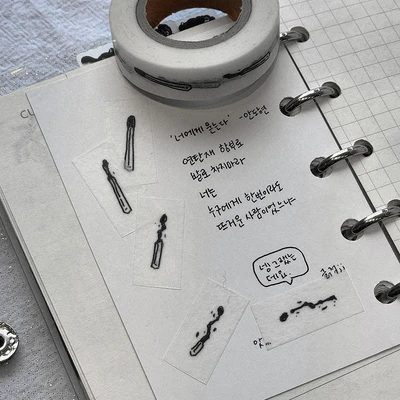 '너에게 묻는다' -안도현
연탄재 함부로
발로 차지마라
너는
누구에게 한번이라도
뜨거운 사람이었느냐
넹 그랬는
데요.
앗...